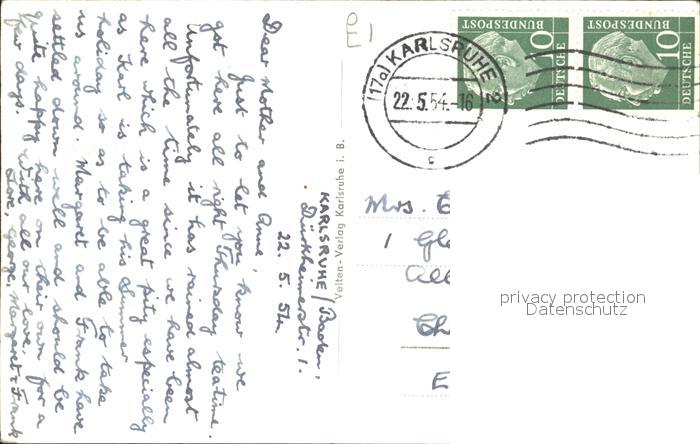 KARLSRUHE/Baden.,
Dürkheimerstr. 1.
22. 5. 54.
Dear Mother and Anne,
Just to let you know we
got here all right Thursday teatime.
Unfortunately it has rained almost
all the time since we have been
here which is a great pity especially
as Karl is taking his summer
holiday so as to be able to take
us around. Margaret and Frank have
settled down well and should be
quite happy here on their own for a
few days. With all our love,
Love, George, Margaret & Frank
Velten-Verlag Karlsruhe i. B.
E1
(17a) KARLSRUHE 2
22.5.54.-16
c
10
DEUTSCHE
BUNDESPOST
10
DEUTSCHE
BUNDESPOST
Mrs. E
1 Gle
Ch
E
privacy protection
Datenschutz